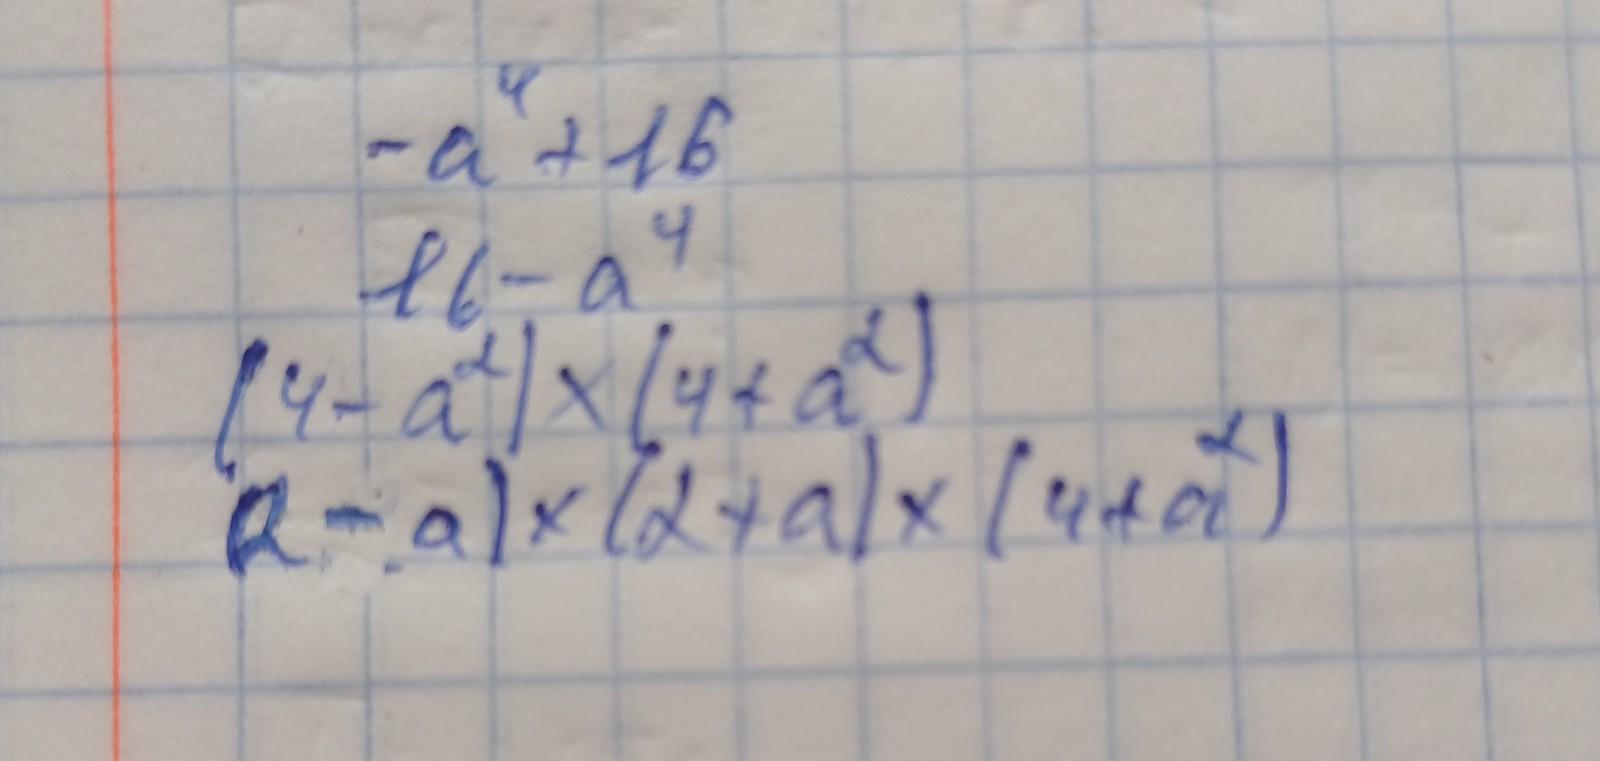 -a⁴+16
16-a⁴
(4-a²)×(4+a²)
(2-a)×(2+a)×(4+a²)